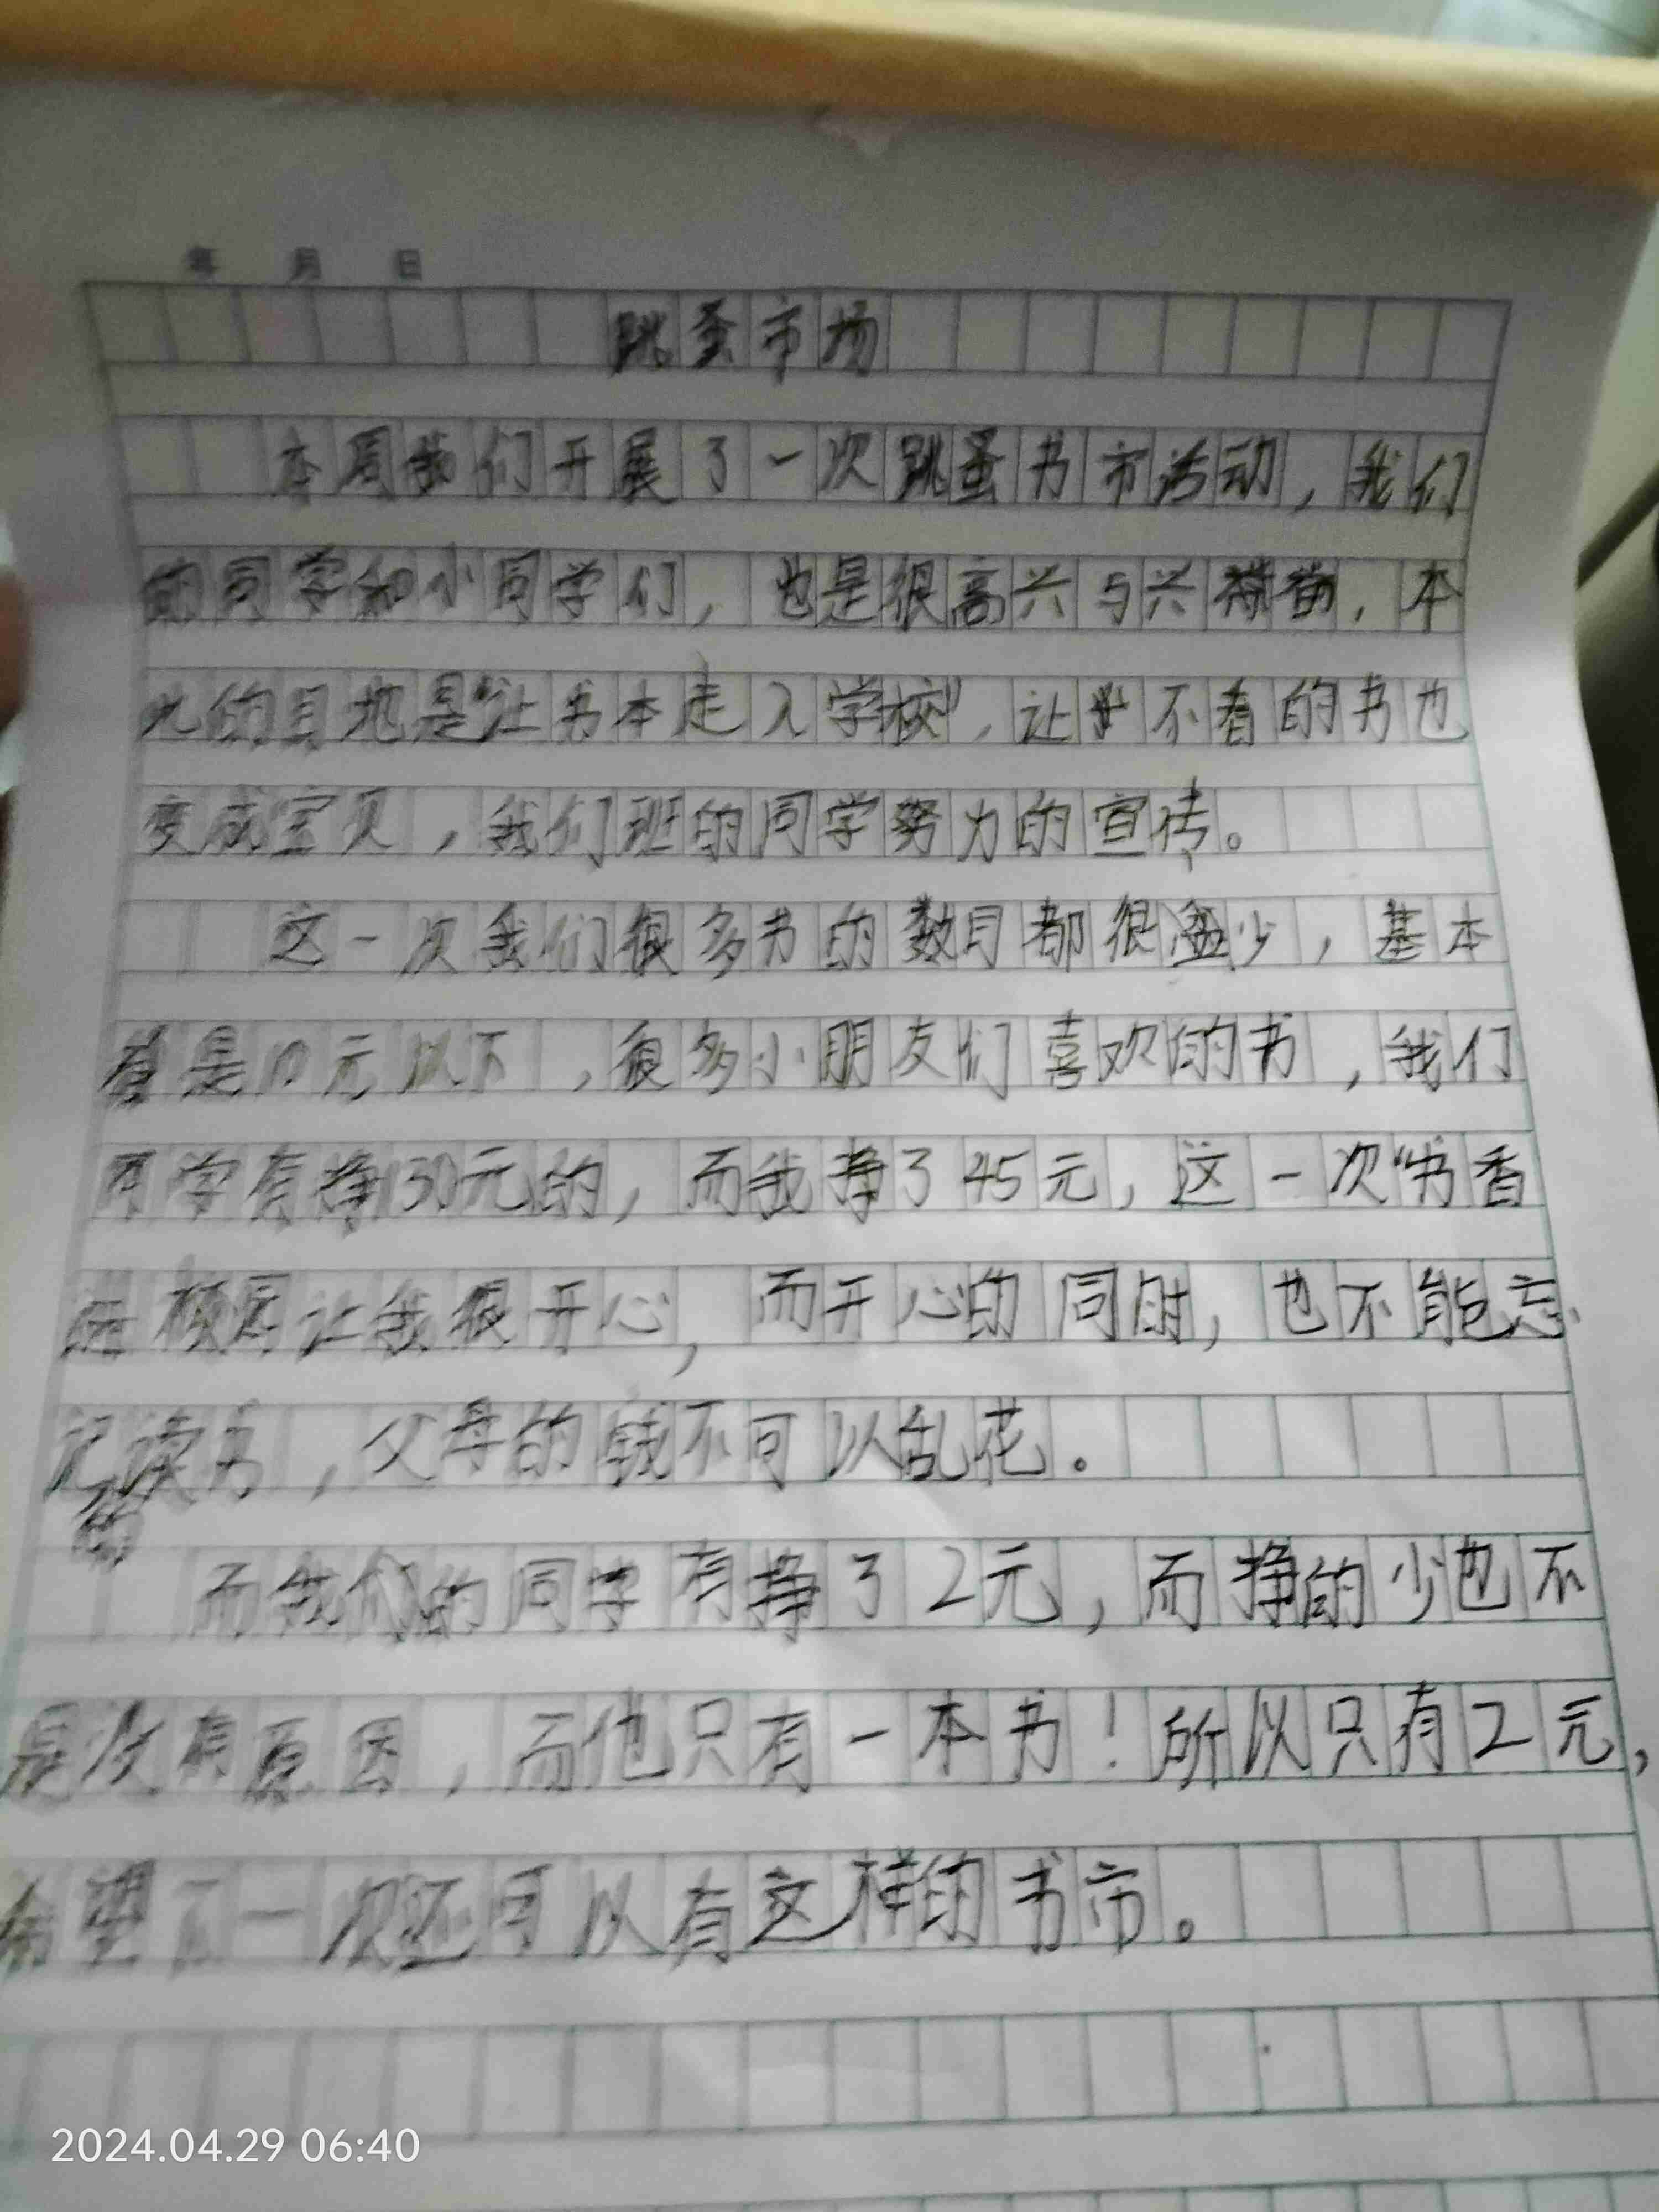 年 月 日
跳蚤市场
本周我们开展了一次跳蚤书市活动，我们
的同学和小同学们，也是很高兴与兴，本
次的目地是“让书本走入学校”，让不看的书也
变成宝贝，我们班的同学努力的宣传。
这一次我们很多书的数目都很少，基本
是10元以下，很多小朋友们喜欢的书，我们
同学有挣130元的，而我挣了45元，这一次“书香
校园让我很开心，而开心的同时，也不能忘
记读书，父母的钱不可以乱花。
的
而我们的同学有挣了2元，而挣的少也不
是没有原因，而他只有一本书！所以只有2元，
希望下一次还可以有这样的书市。
2024.04.29 06:40